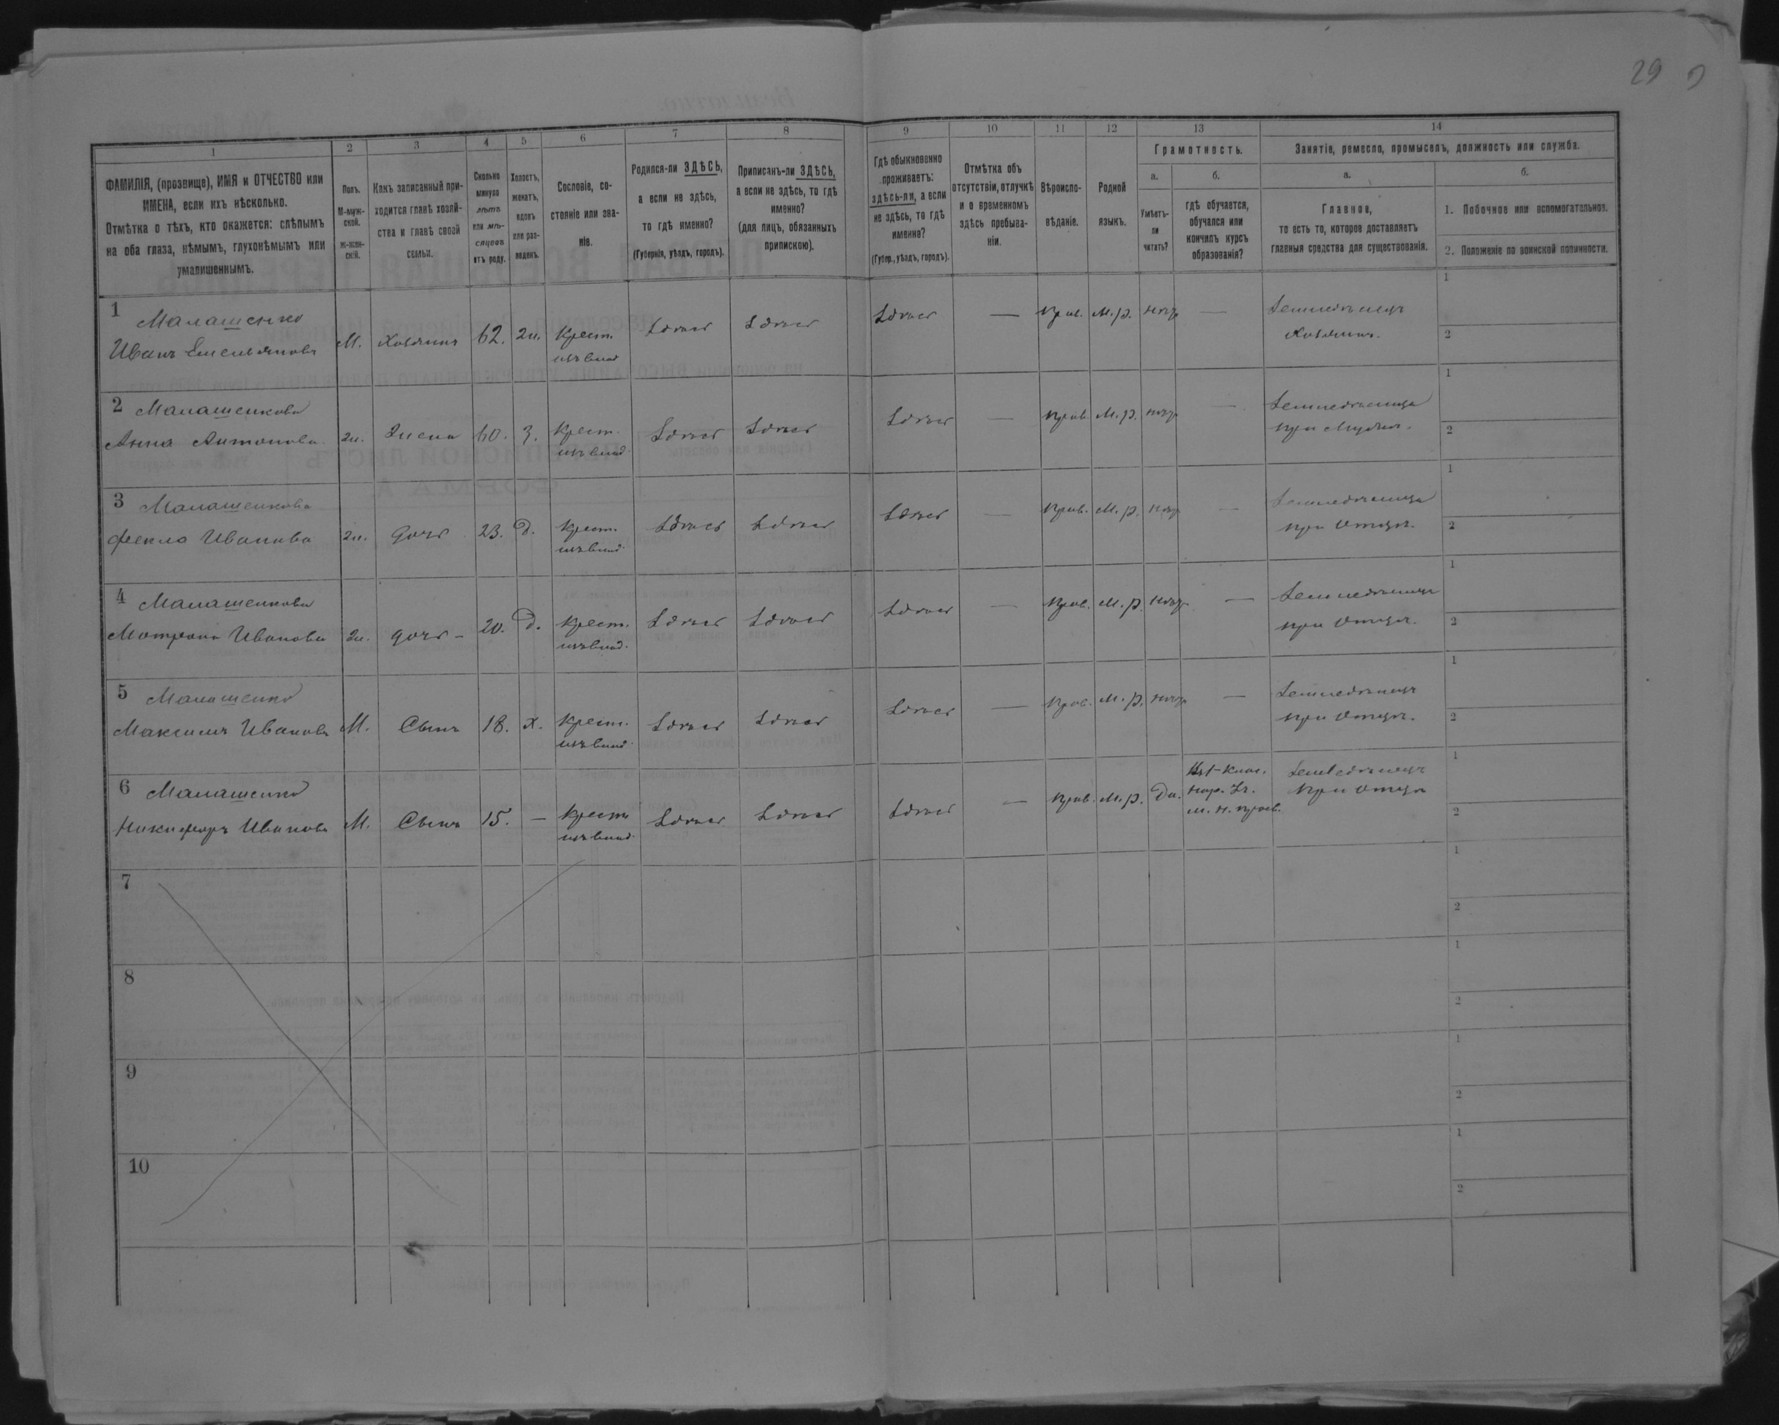 29
1
2
3
4
5
6
7
8
9
10
11
12
13
14
ФАМИЛІЯ, (прозвище), ИМЯ и ОТЧЕСТВО или
ИМЕНА, если ихъ нѣсколько.
Отмѣтка о тѣхъ, кто окажется: слѣпымъ
на оба глаза, нѣмымъ, глухонѣмымъ или
умалишеннымъ.
Полъ.
М-муж-
ской.
Ж-жен-
скій.
Какъ записанный при-
ходится главѣ хозяй-
ства и главѣ своей
семьи.
Сколько
минуло
лѣтъ
или мѣ-
сяцевъ
отъ роду.
Холостъ,
женатъ,
вдовъ
или раз-
веденъ.
Сословіе, со-
стояніе или зва-
ніе.
Родился-ли ЗДѢСЬ,
а если не здѣсь,
то гдѣ именно?
(Губернія, уѣздъ, городъ).
Приписанъ-ли ЗДѢСЬ,
а если не здѣсь, то гдѣ
именно?
(для лицъ, обязанныхъ
припискою).
Гдѣ обыкновенно
проживаетъ:
здѣсь-ли, а если
не здѣсь, то гдѣ
именно?
(Губер., уѣздъ, городъ).
Отмѣтка объ
отсутствіи, отлучкѣ
и о временномъ
здѣсь пребыва-
ніи.
Вѣроиспо-
вѣданіе.
Родной
языкъ.
Грамотность.
а.
Умѣетъ-
ли
читать?
б.
гдѣ обучается,
обучался или
кончилъ курсъ
образованія?
Занятіе, ремесло, промыселъ, должность или служба.
а.
Главное,
то есть то, которое доставляетъ
главныя средства для существованія.
б.
1. Побочное или вспомогательное.
2. Положеніе по воинской повинности.
1
Малашенко
Иванъ Емельяновъ
М. Хозяинъ 62. Ж. Крест. Здѣсь Здѣсь Здѣсь — Прав. М.р. нѣтъ — Земледѣлецъ
изъ влад. Хозяинъ.
1
2
2 Малашенкова
Анна Антонова Ж. Жена 60. З. Крест. Здѣсь Здѣсь Здѣсь — Прав. М.р. нѣтъ — Земледѣлица
изъ влад. при мужѣ.
1
2
3 Малашенкова
Фекла Иванова Ж. Дочь 23. Д. Крест. Здѣсь Здѣсь Здѣсь — Прав. М.р. нѣтъ — Земледѣлица
изъ влад. при отцѣ.
1
2
4 Малашенкова
Матрона Иванова Ж. Дочь 20. Д. Крест. Здѣсь Здѣсь Здѣсь — Прав. М.р. нѣтъ — Земледѣлица
изъ влад. при отцѣ.
1
2
5 Малашенко
Максимъ Ивановъ М. Сынъ 18. Х. Крест. Здѣсь Здѣсь Здѣсь — Прав. М.р. нѣтъ — Земледѣлецъ
изъ влад. при отцѣ.
1
2
6 Малашенко
Никифоръ Ивановъ М. Сынъ 15. — Крест. Здѣсь Здѣсь Здѣсь — Прав. М.р. Да. Земледѣлецъ
изъ влад. м. н. просв. при отцѣ
1
2
7
1
2
8
1
2
9
1
2
10
1
2